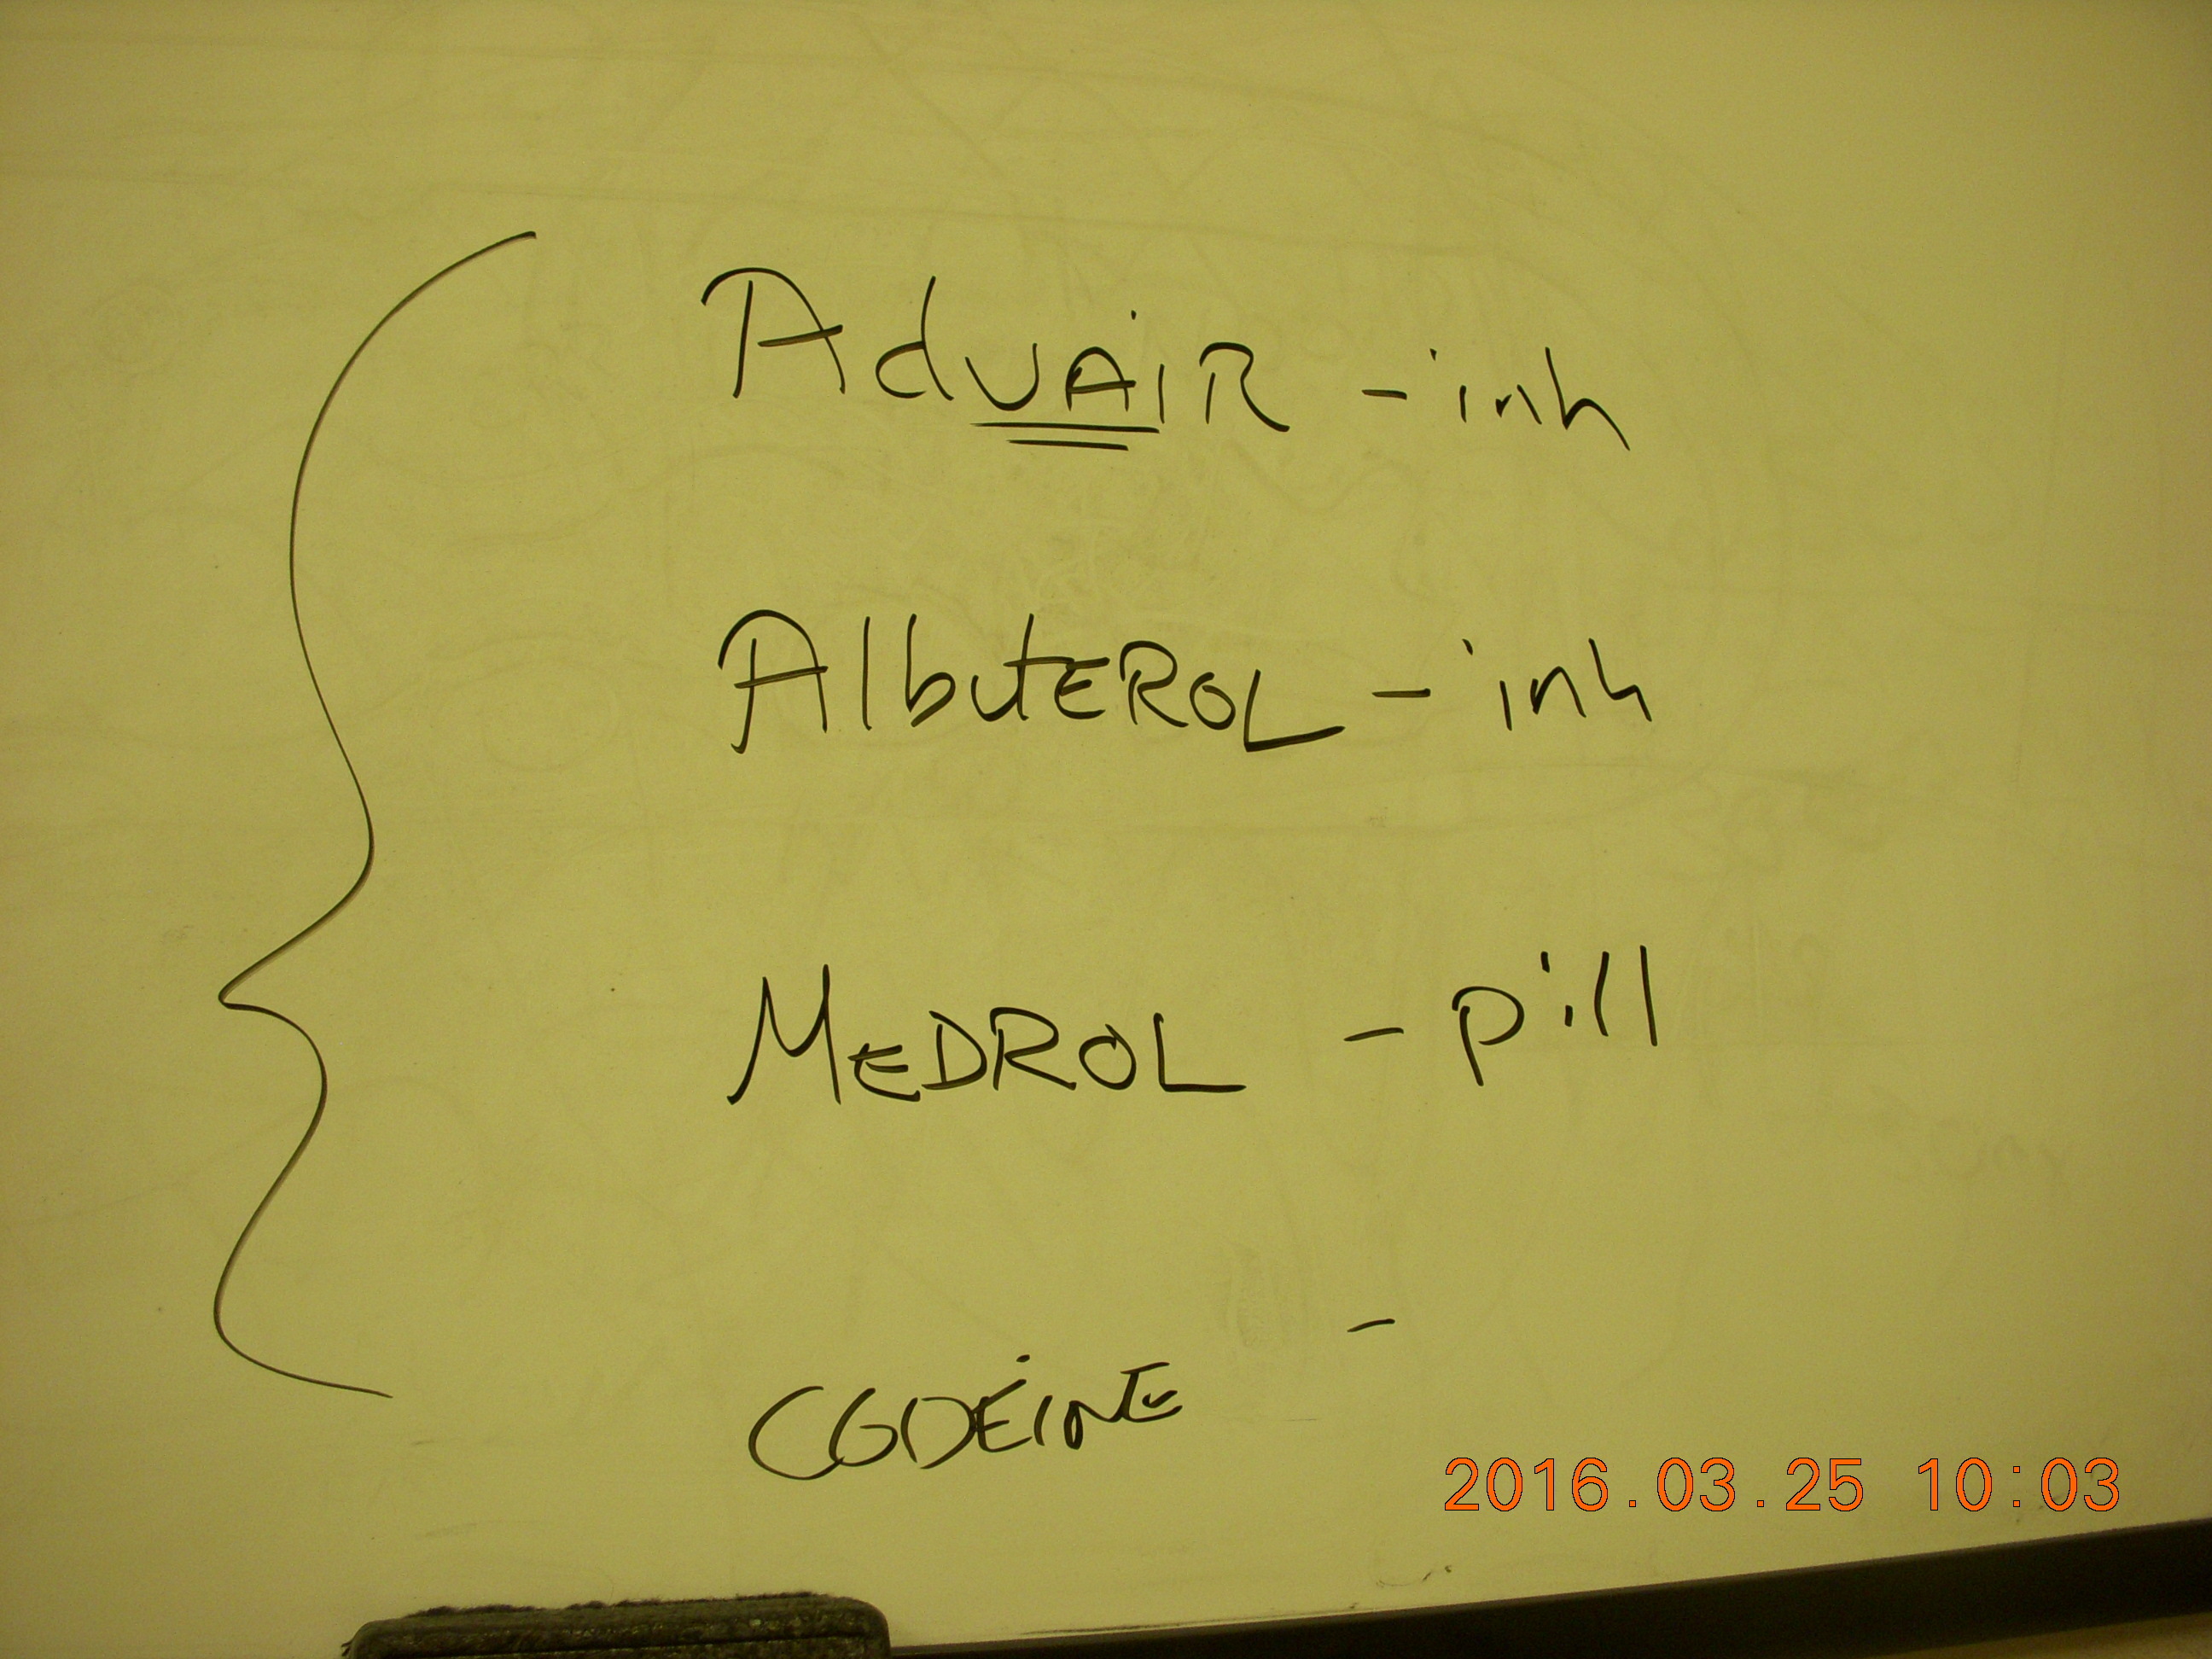 AdvAiR - inh
AlbutEROL - inh
MEDROL - pill
CODEINE -
2016.03.25 10:03